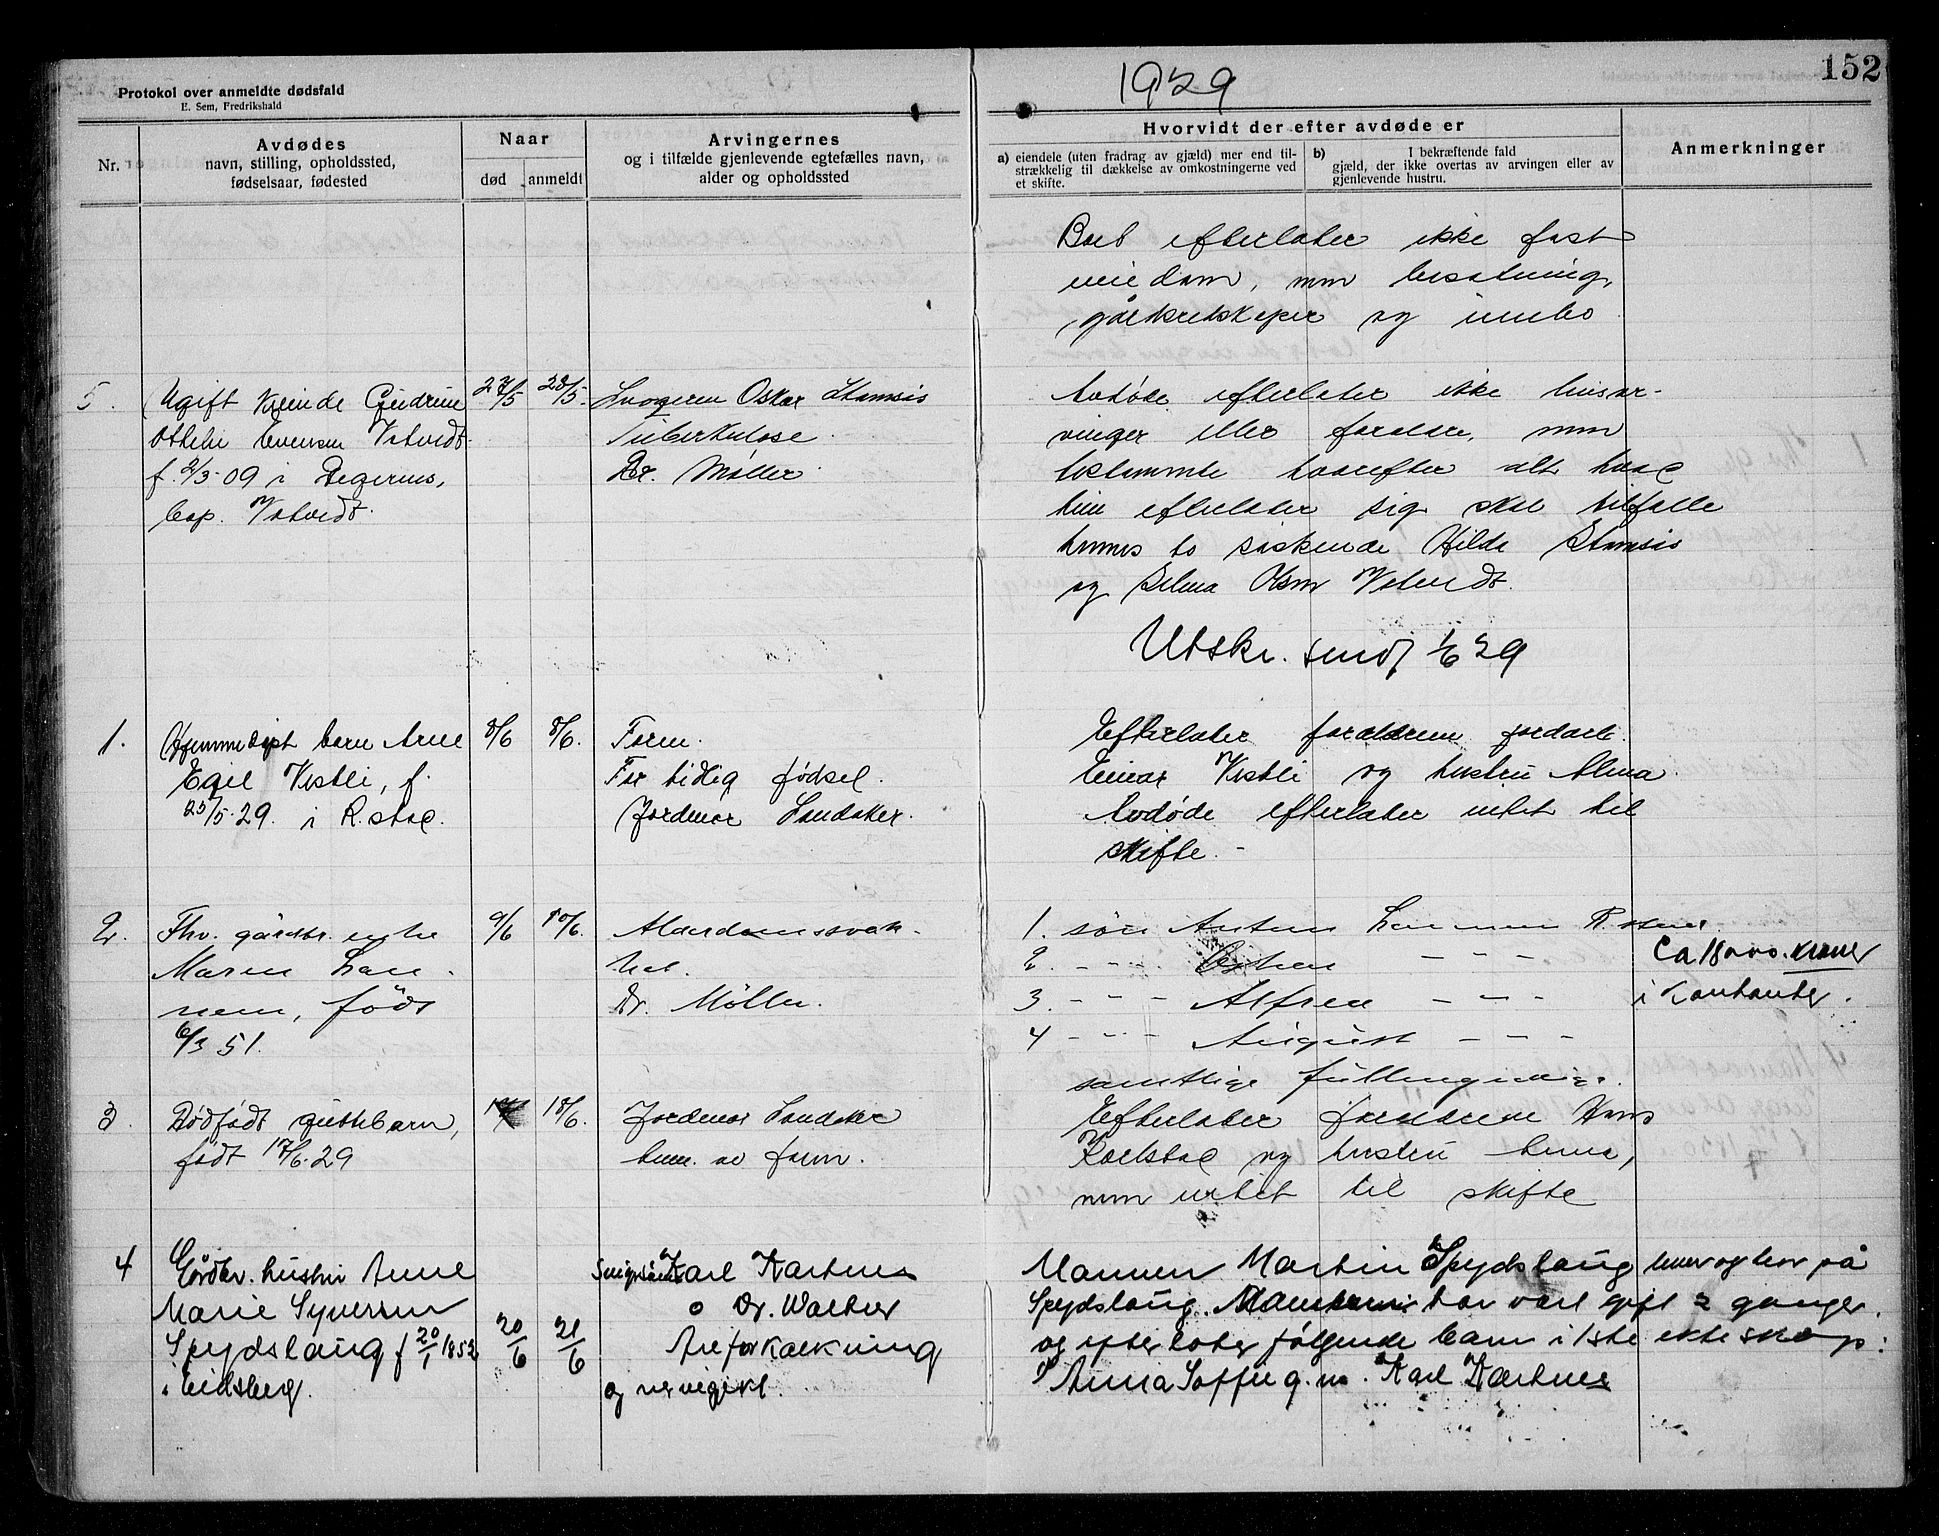 1929
152
Protokol over anmeldte dødsfald
E. Sem, Fredrikshald
Nr.
Avdødes
navn, stilling, opholdssted,
fødselsaar, fødested
Naar
død
anmeldt
Arvingernes
og i tilfælde gjenlevende egtefælles navn,
alder og opholdssted
Hvorvidt der efter avdøde er
a) eiendele (uten fradrag av gjæld) mer end til-
strækkelig til dækkelse av omkostningerne ved
et skifte.
b) I bekræftende fald
gjæld, der ikke overtas av arvingen eller av
gjenlevende hustru.
Anmerkninger
Boet efterlater ikke fast
eiedom, men besætning,
gårdsredskaper og innbo
5.
Ugift kvinde Gudrun
Othelie Evensen Vatvedt
f. 2/3-09 i Degernes,
bop. Vatvedt.
27/5
28/5.
Svogeren Oskar Stomsis
Tuberkulose
Dr. Møller
Avdøde efterlater ikke livsar-
vinger eller foreldre, men
bestemmte havrefter alt hvad
hun efterlater sig skal tilfalle
hennes to søskende Hilda Stomsis
og Selma Olsen Vatvedt.
Utskr. sendt 1/6 29
1.
Hjemmedøpt barn Arne
Egil Vestli, f.
25/5-29. i R.stad.
8/6
8/6.
Faren.
For tidlig fødsel.
Jordmor Sandaker.
Efterlater foreldrene jordarb.
Einar Vestli og hustru Alma
Avdøde efterlater intet til
skifte.
2.
Fhv. gårdbr. enke
Maren Lan-
nem, født
6/3 51.
9/6
10/6.
Alderdomssvak-
het.
Dr. Møller.
1. søn Anton Lannem R.stad.
2. - - - - - -
3 - - - Alfred - - -
4 - - - August - - -
samtlige fullmyndige.
Ca 18000. kroner
i kontanter.
3.
Dødfødt guttebarn,
født 17/6-29
18/6.
Jordmor Sandaker
anm. av faren.
Efterlater foreldrene Hans
Karlstad og hustru Anna,
men intet til skifte
4
Gårdbr. hustru Anne
Marie Syversen
Spydslaug f 20/1 1852
i Eidsberg.
20/6
21/6
Svigersønn Karl Kartnes
o Dr. Walter
Åreforkalkning
og nervegikt.
Mannen Martin Spydslaug lever og bor på
Spydslaug. har vært gift 2 ganger
og efterlater følgende barn i 1ste ekteskap:
1) Anna Soffie g.m. Karl Kartnes